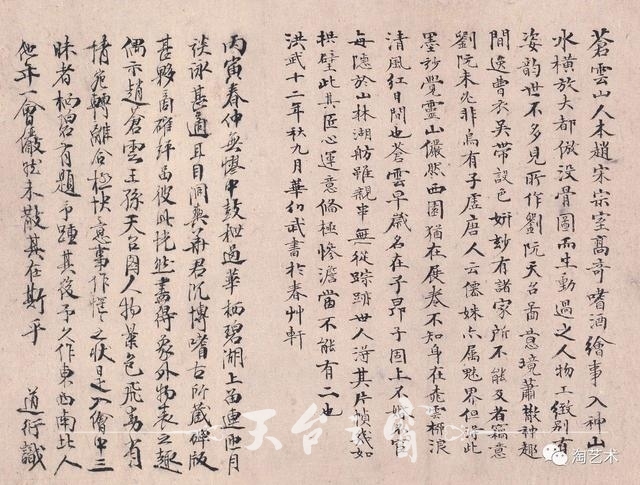 蒼雲山人本趙宋宗室高奇嗜酒繪事入神山
水橫放大都倣没骨圖而生動過之人物工緻別有
姿韵世不多見所作劉阮天台啚意境蕭散神趣
間逸曹衣吴帶設色妍玅有諸家所不能及者竊意
劉阮未必非烏有子虚唐人云儒姝亦属魅界但得此
墨玅覺靈山儼然西園猶在展卷不知身在虎雲栁浪
清風紅日間也蒼雲早歲名在子昂子固上不
每隱於山林湖舫雖親串無從踪跡世人得其片幀几如
拱璧此其匠心運意脩極惨澹當不能有二也
洪武十二年秋九月華幼武書於春艸軒
丙寅春仲無憀中鼓枻過華栖碧湖上面連池月
談詠甚適且目洞與華君沉博嗜古所藏碑版
甚夥商確評品彼此忱然晝得象外物表之趣
偶示趙蒼雲王孫天台圖人物景色飛舞有
情宛轉離合極快意事作惟之狀是入會中三
昧者栖碧有題予踵其後予久作東西南北人
他年一會儼然未散其在斯乎 道衍識
天台
淘艺术